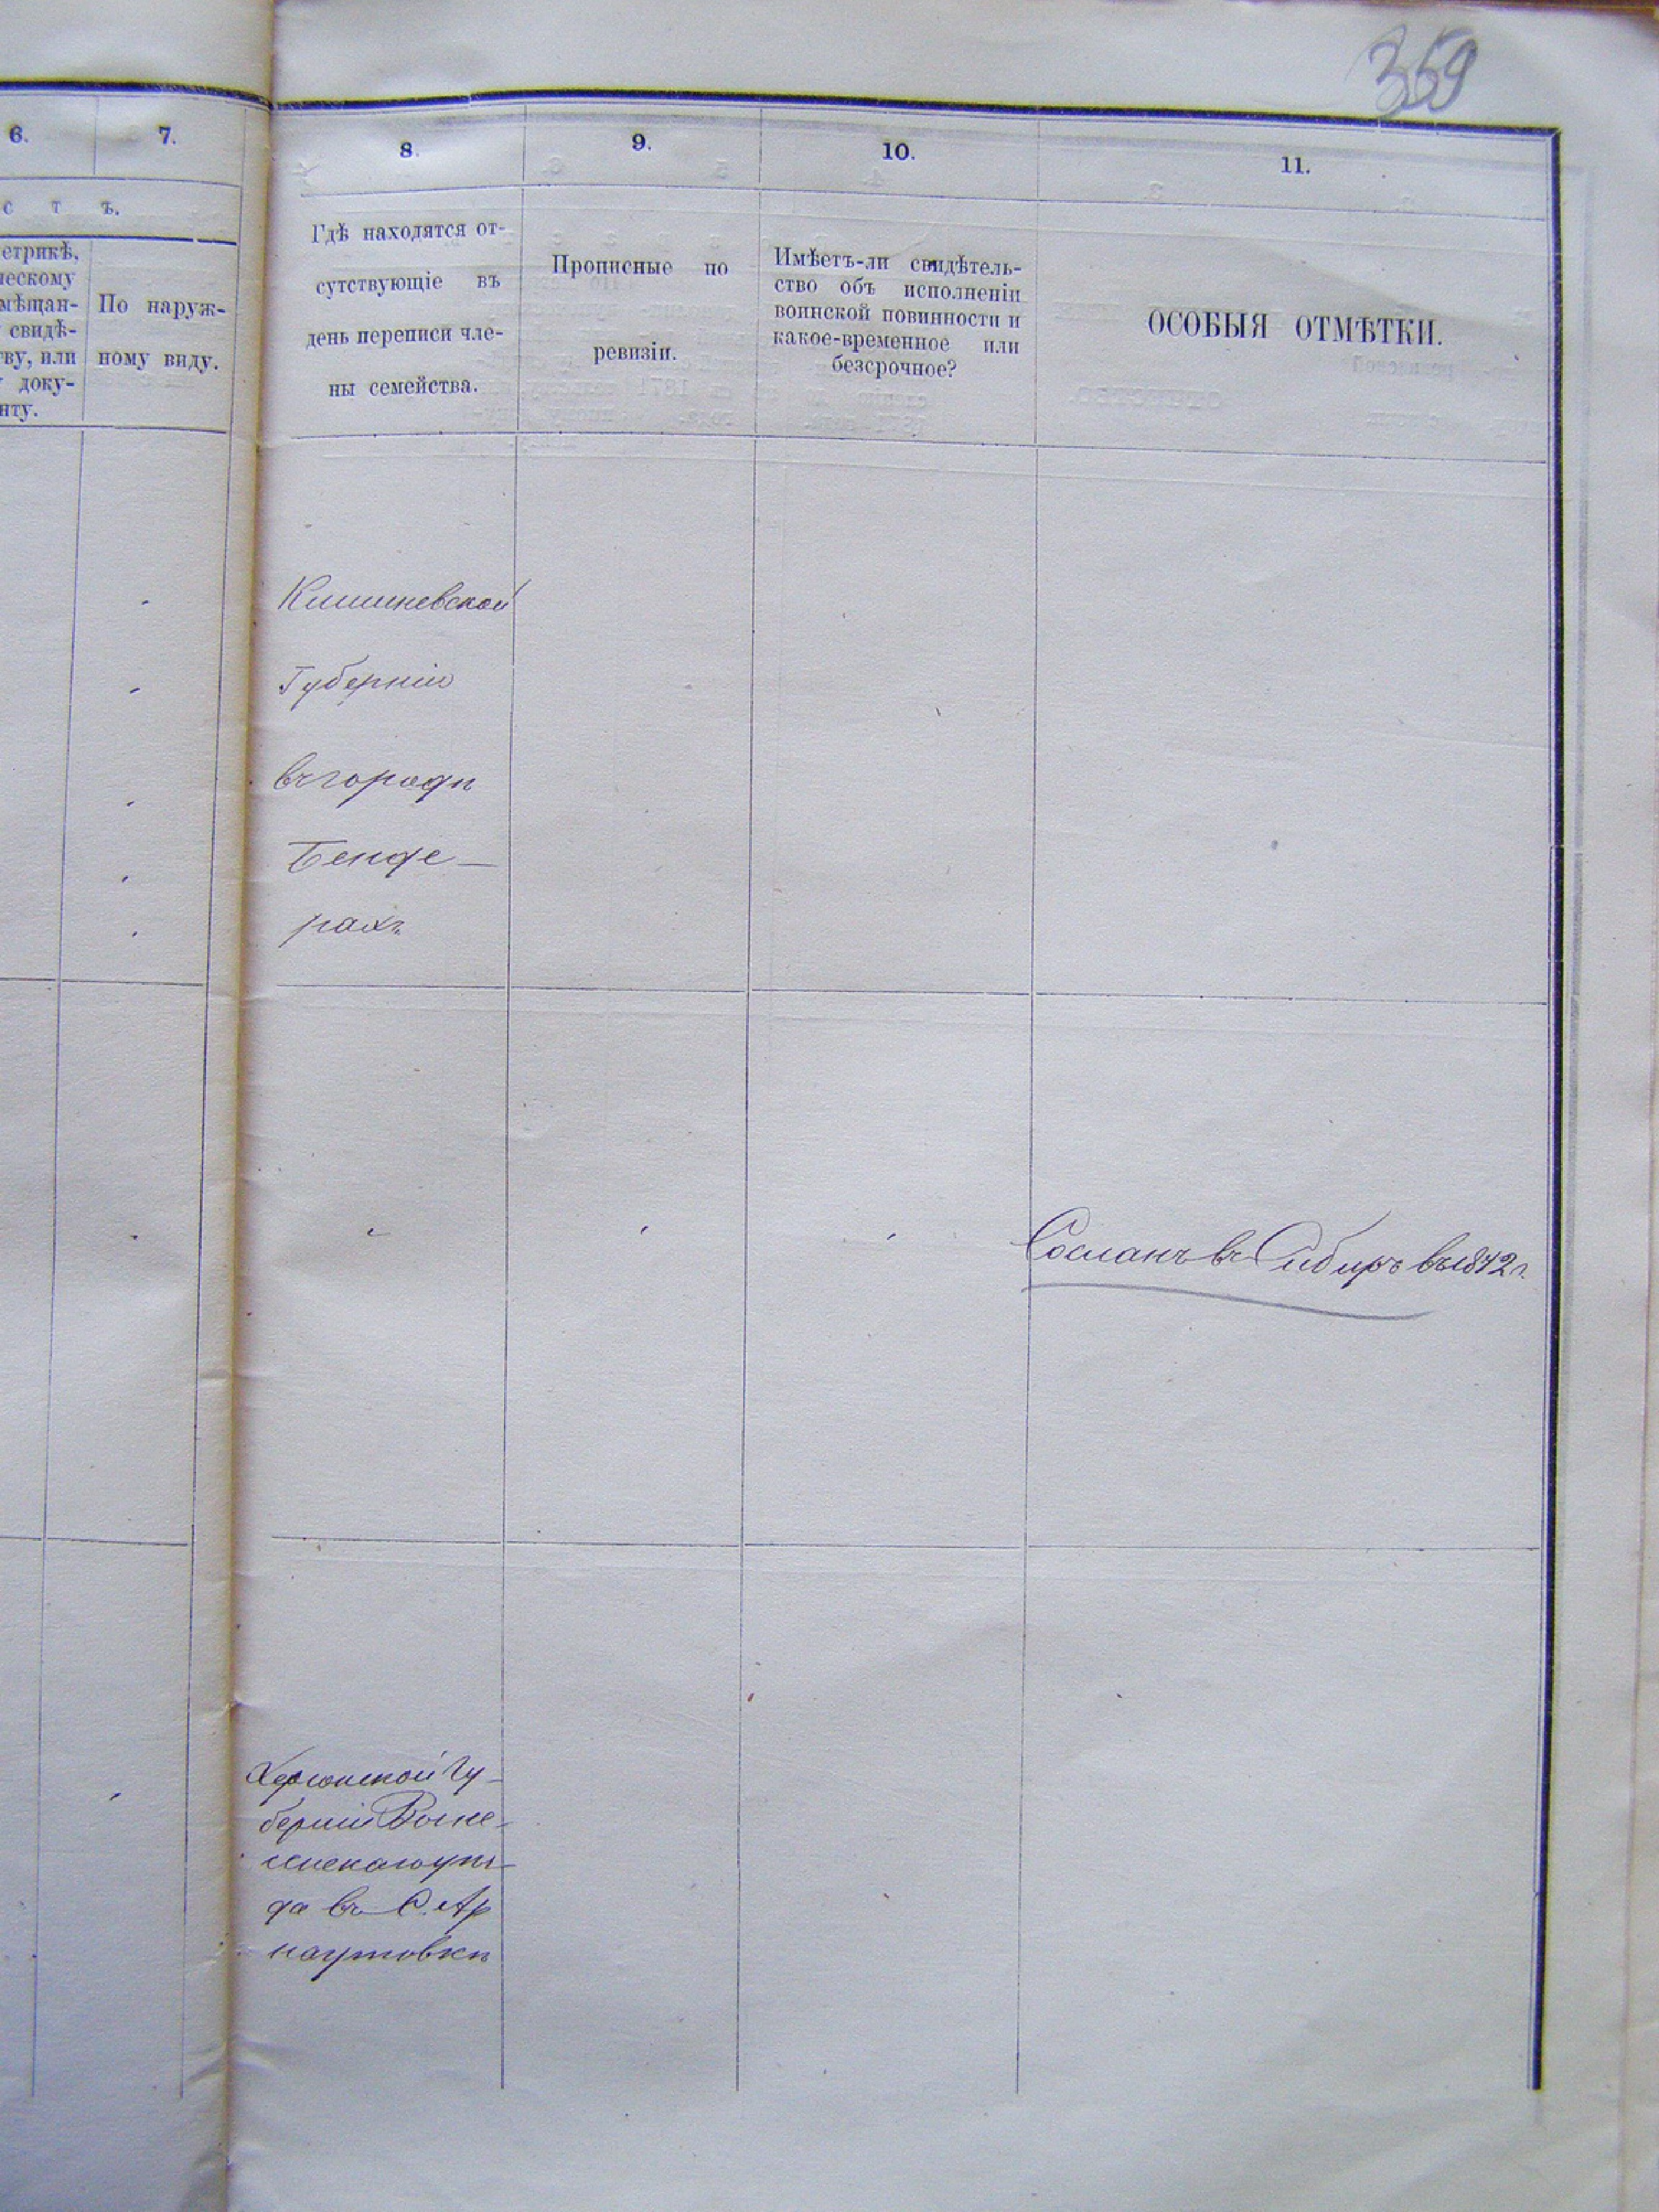 359
6.
7.
8.
9.
10.
11.
с т ъ.
етрикѣ,
ческому
мѣщан-
свидѣ-
ву, или
доку-
нту.
По наруж-
ному виду.
Гдѣ находятся от-
сутствующіе въ
день переписи чле-
ны семейства.
Прописные по
ревизіи.
Имѣетъ-ли свидѣтель-
ство объ исполненіи
воинской повинности и
какое-временное или
безсрочное?
ОСОБЫЯ ОТМѢТКИ.
Кишиневской
Губерніи
въ городѣ
Бенде-
рахъ
Сосланъ въ Сибирь въ
Херсонской Гу-
берніи Возне-
сенскаго уѣз-
да въ С. Ар
наутовкѣ